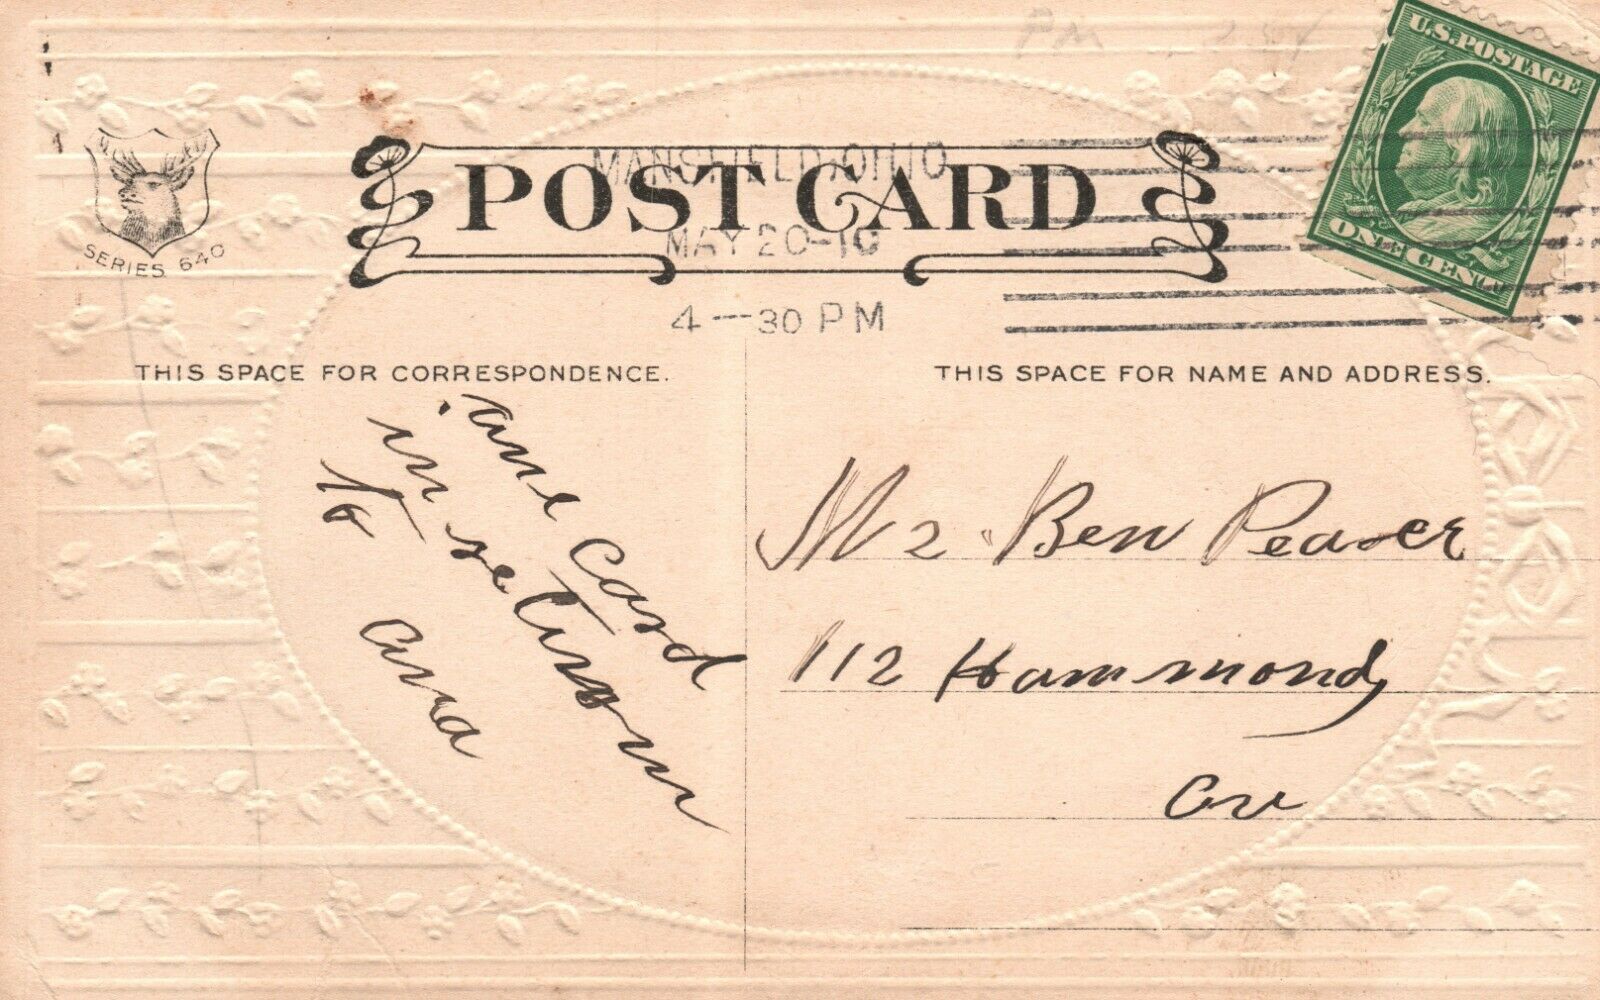 PM
U.S. POSTAGE
ONE CENT
POST CARD
MANSFIELD, OHIO
MAY 20-10
4-30 PM
SERIES 640
THIS SPACE FOR CORRESPONDENCE.
THIS SPACE FOR NAME AND ADDRESS.
one Card
in return
to
Mr. Ben Peaser
112 Hammond
Ave